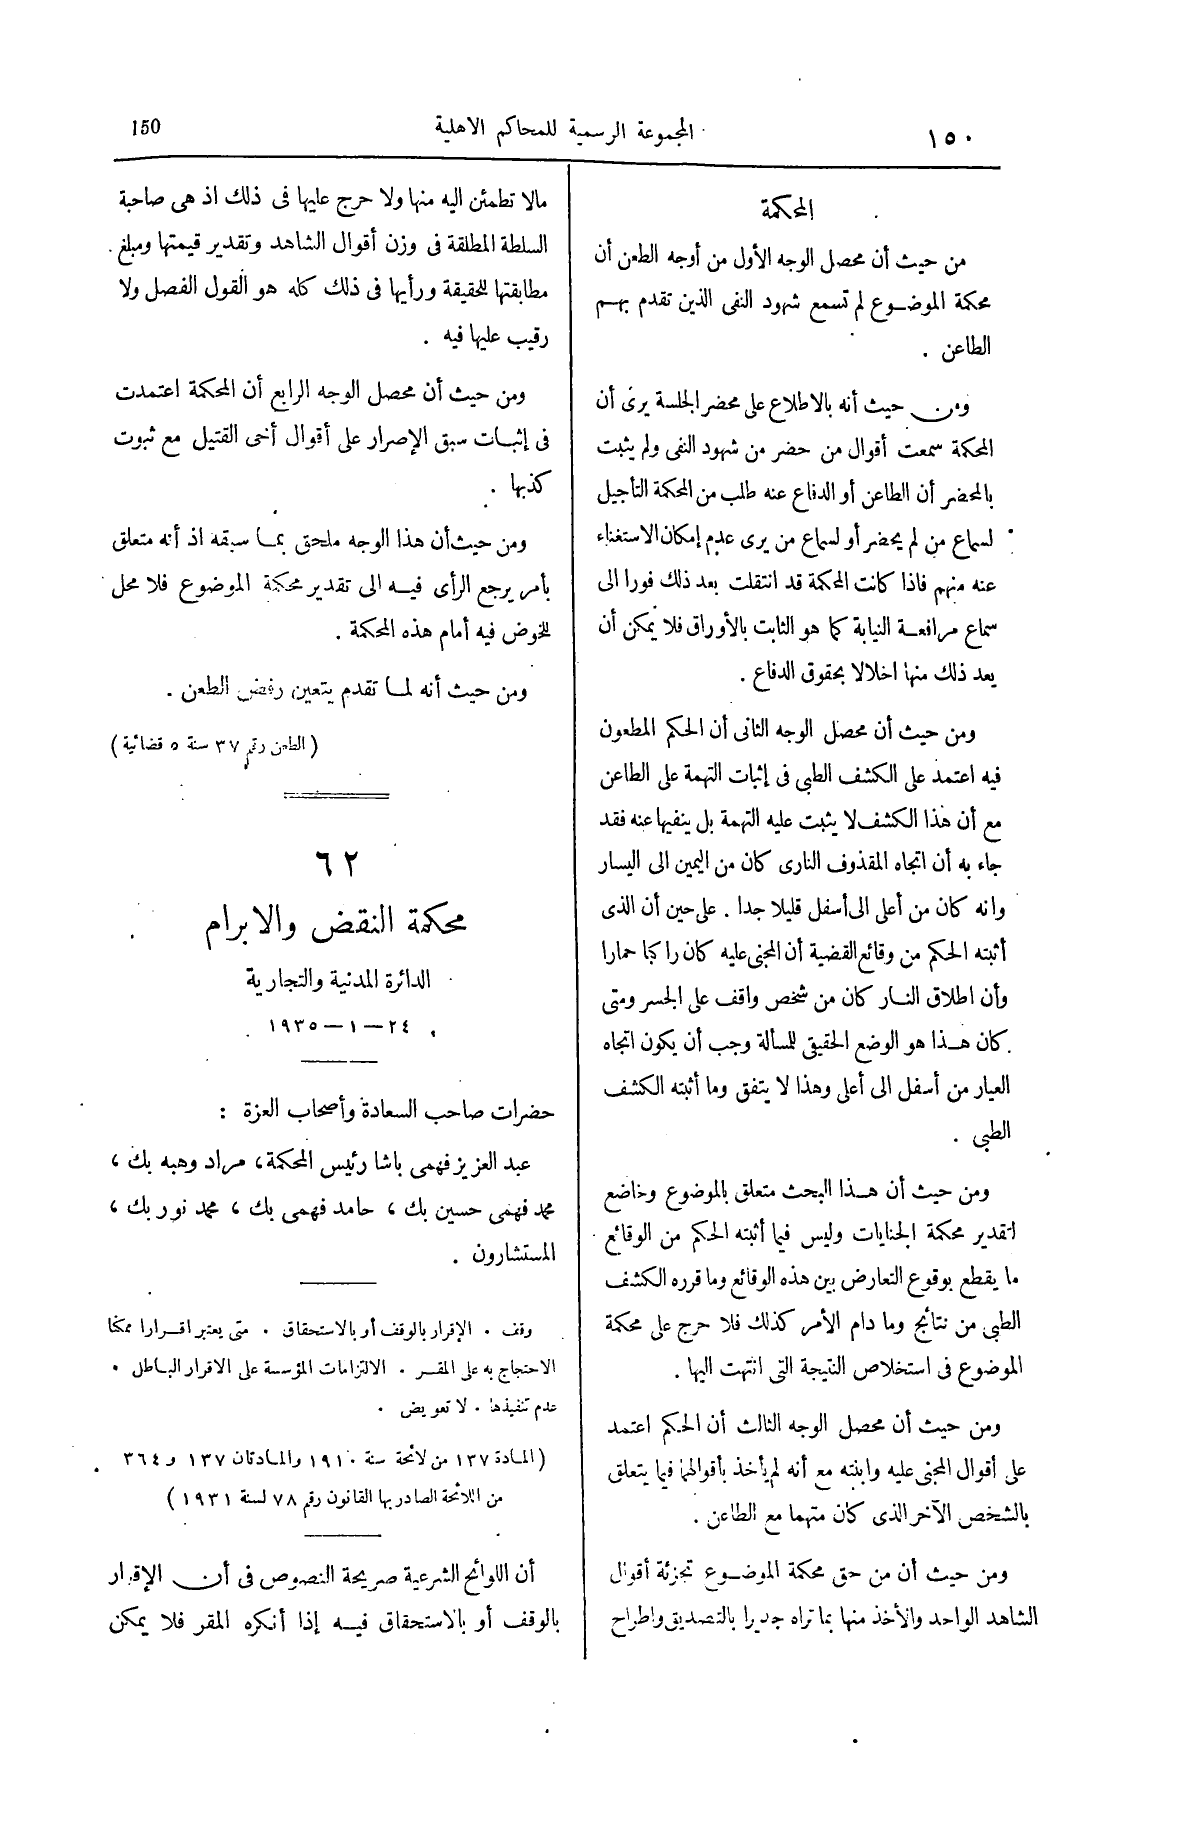 ١٥٠
المجموعة الرسمية للمحاكم الاهلية
150
المحكمة
من حيث أن محصل الوجه الأول من أوجه الطعن أن
محكمة الموضوع لم تسمع شهود النفى الذين تقدم بهم
الطاعن .
ومن حيث أنه بالاطلاع على محضر الجلسة يرى أن
المحكمة سمعت أقوال من حضر من شهود النفى ولم يثبت
بالمحضر أن الطاعن أو الدفاع عنه طلب من المحكمة التأجيل
لسماع من لم يحضر أو لسماع من يرى عدم إمكان الاستغناء
عنه منهم فاذا كانت المحكمة قد انتقلت بعد ذلك فورا الى
سماع مرافعة النيابة كما هو الثابت بالأوراق فلا يمكن أن
يعد ذلك منها اخلالا بحقوق الدفاع .
ومن حيث أن محصل الوجه الثانى أن الحكم المطعون
فيه اعتمد على الكشف الطبى فى إثبات التهمة على الطاعن
مع أن هذا الكشف لا يثبت عليه التهمة بل ينفيها عنه فقد
جاء به أن اتجاه المقذوف النارى كان من اليمين الى اليسار
وانه كان من أعلى الى أسفل قليلا جدا . على حين أن الذى
أثبته الحكم من وقائع القضية أن المجنى عليه كان راكبا حمارا
وأن اطلاق النار كان من شخص واقف على الجسر ومتى
كان هذا هو الوضع الحقيقى للمسألة وجب أن يكون اتجاه
العيار من أسفل الى أعلى وهذا لا يتفق وما أثبته الكشف
الطبى .
ومن حيث أن هذا البحث متعلق بالموضوع وخاضع
لتقدير محكمة الجنايات وليس فيما أثبته الحكم من الوقائع
ما يقطع بوقوع التعارض بين هذه الوقائع وما قرره الكشف
الطبى من نتائج وما دام الأمر كذلك فلا حرج على محكمة
الموضوع فى استخلاص النتيجة التى انتهت اليها .
ومن حيث أن محصل الوجه الثالث أن الحكم اعتمد
على أقوال المجنى عليه وابنته مع أنه لم يأخذ بأقوالهما فيما يتعلق
بالشخص الآخر الذى كان متهما مع الطاعن .
ومن حيث أن من حق محكمة الموضوع تجزئة أقوال
الشاهد الواحد والأخذ منها بما تراه جديرا بالتصديق واطراح
مالا تطمئن اليه منها ولا حرج عليها فى ذلك اذ هى صاحبة
السلطة المطلقة فى وزن أقوال الشاهد وتقدير قيمتها ومبلغ
مطابقتها للحقيقة ورأيها فى ذلك كله هو القول الفصل ولا
رقيب عليها فيه .
ومن حيث أن محصل الوجه الرابع أن المحكمة اعتمدت
فى إثبات سبق الإصرار على أقوال أخى القتيل مع ثبوت
كذبها .
ومن حيث أن هذا الوجه ملحق بما سبقه اذ أنه متعلق
بأمر يرجع الرأى فيه الى تقدير محكمة الموضوع فلا محل
للخوض فيه أمام هذه المحكمة .
ومن حيث أنه لما تقدم يتعين رفض الطعن .
(الطعن رقم ٣٧ سنة ٥ قضائية)
٦٢
محكمة النقض والابرام
الدائرة المدنية والتجارية
٢٤ – ١ – ١٩٣٥
حضرات صاحب السعادة وأصحاب العزة :
عبد العزيز فهمى باشا رئيس المحكمة، مراد وهبه بك ،
محمد فهمى حسين بك ، حامد فهمى بك ، محمد نور بك ،
المستشارون .
وقف . الإقرار بالوقف أو بالاستحقاق . متى يعتبر اقرارا ممكنا
الاحتجاج به على المقر . الالتزامات المؤسسة على الاقرار الباطل .
عدم تنفيذها . لا تعويض .
(المادة ١٣٧ من لائحة سنة ١٩١٠ والمادتان ١٣٧ و ٣٦٤
من اللائحة الصادر بها القانون رقم ٧٨ لسنة ١٩٣١)
أن اللوائح الشرعية صريحة النصوص فى أن الإقرار
بالوقف أو بالاستحقاق فيه إذا أنكره المقر فلا يمكن